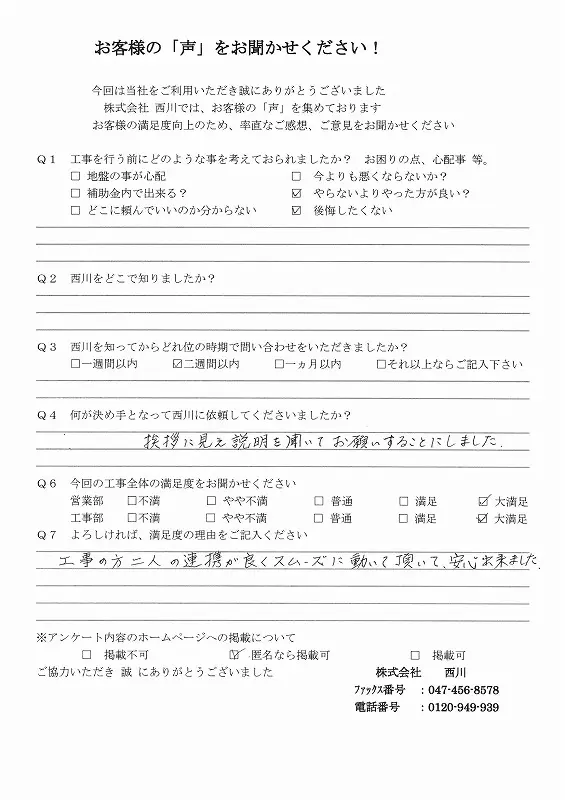 お客様の「声」をお聞かせください！
今回は当社をご利用いただき誠にありがとうございました
株式会社 西川では、お客様の「声」を集めております
お客様の満足度向上のため、率直なご感想、ご意見をお聞かせください
Q１ 工事を行う前にどのような事を考えておられましたか？ お困りの点、心配事 等。
□ 地盤の事が心配 □ 今よりも悪くならないか？
□ 補助金内で出来る？ ☑ やらないよりやった方が良い？
□ どこに頼んでいいのか分からない ☑ 後悔したくない
Q２ 西川をどこで知りましたか？
Q３ 西川を知ってからどれ位の時期で問い合わせをいただきましたか？
□一週間以内 ☑二週間以内 □一ヵ月以内 □それ以上ならご記入下さい
Q４ 何が決め手となって西川に依頼してくださいましたか？
挨拶に見え説明を聞いてお願いすることにしました.
Q６ 今回の工事全体の満足度をお聞かせください
営業部 □不満 □ やや不満 □ 普通 □ 満足 ☑ 大満足
工事部 □不満 □ やや不満 □ 普通 □ 満足 ☑ 大満足
Q７ よろしければ、満足度の理由をご記入ください
工事の方二人の連携が良くスムーズに動いて頂いて、安心出来ました.
※アンケート内容のホームページへの掲載について
□ 掲載不可 ☑ 匿名なら掲載可 □ 掲載可
ご協力いただき 誠 にありがとうございました 株式会社 西川
ﾌｧｯｸｽ番号 ：047-456-8578
電話番号 ：0120-949-939